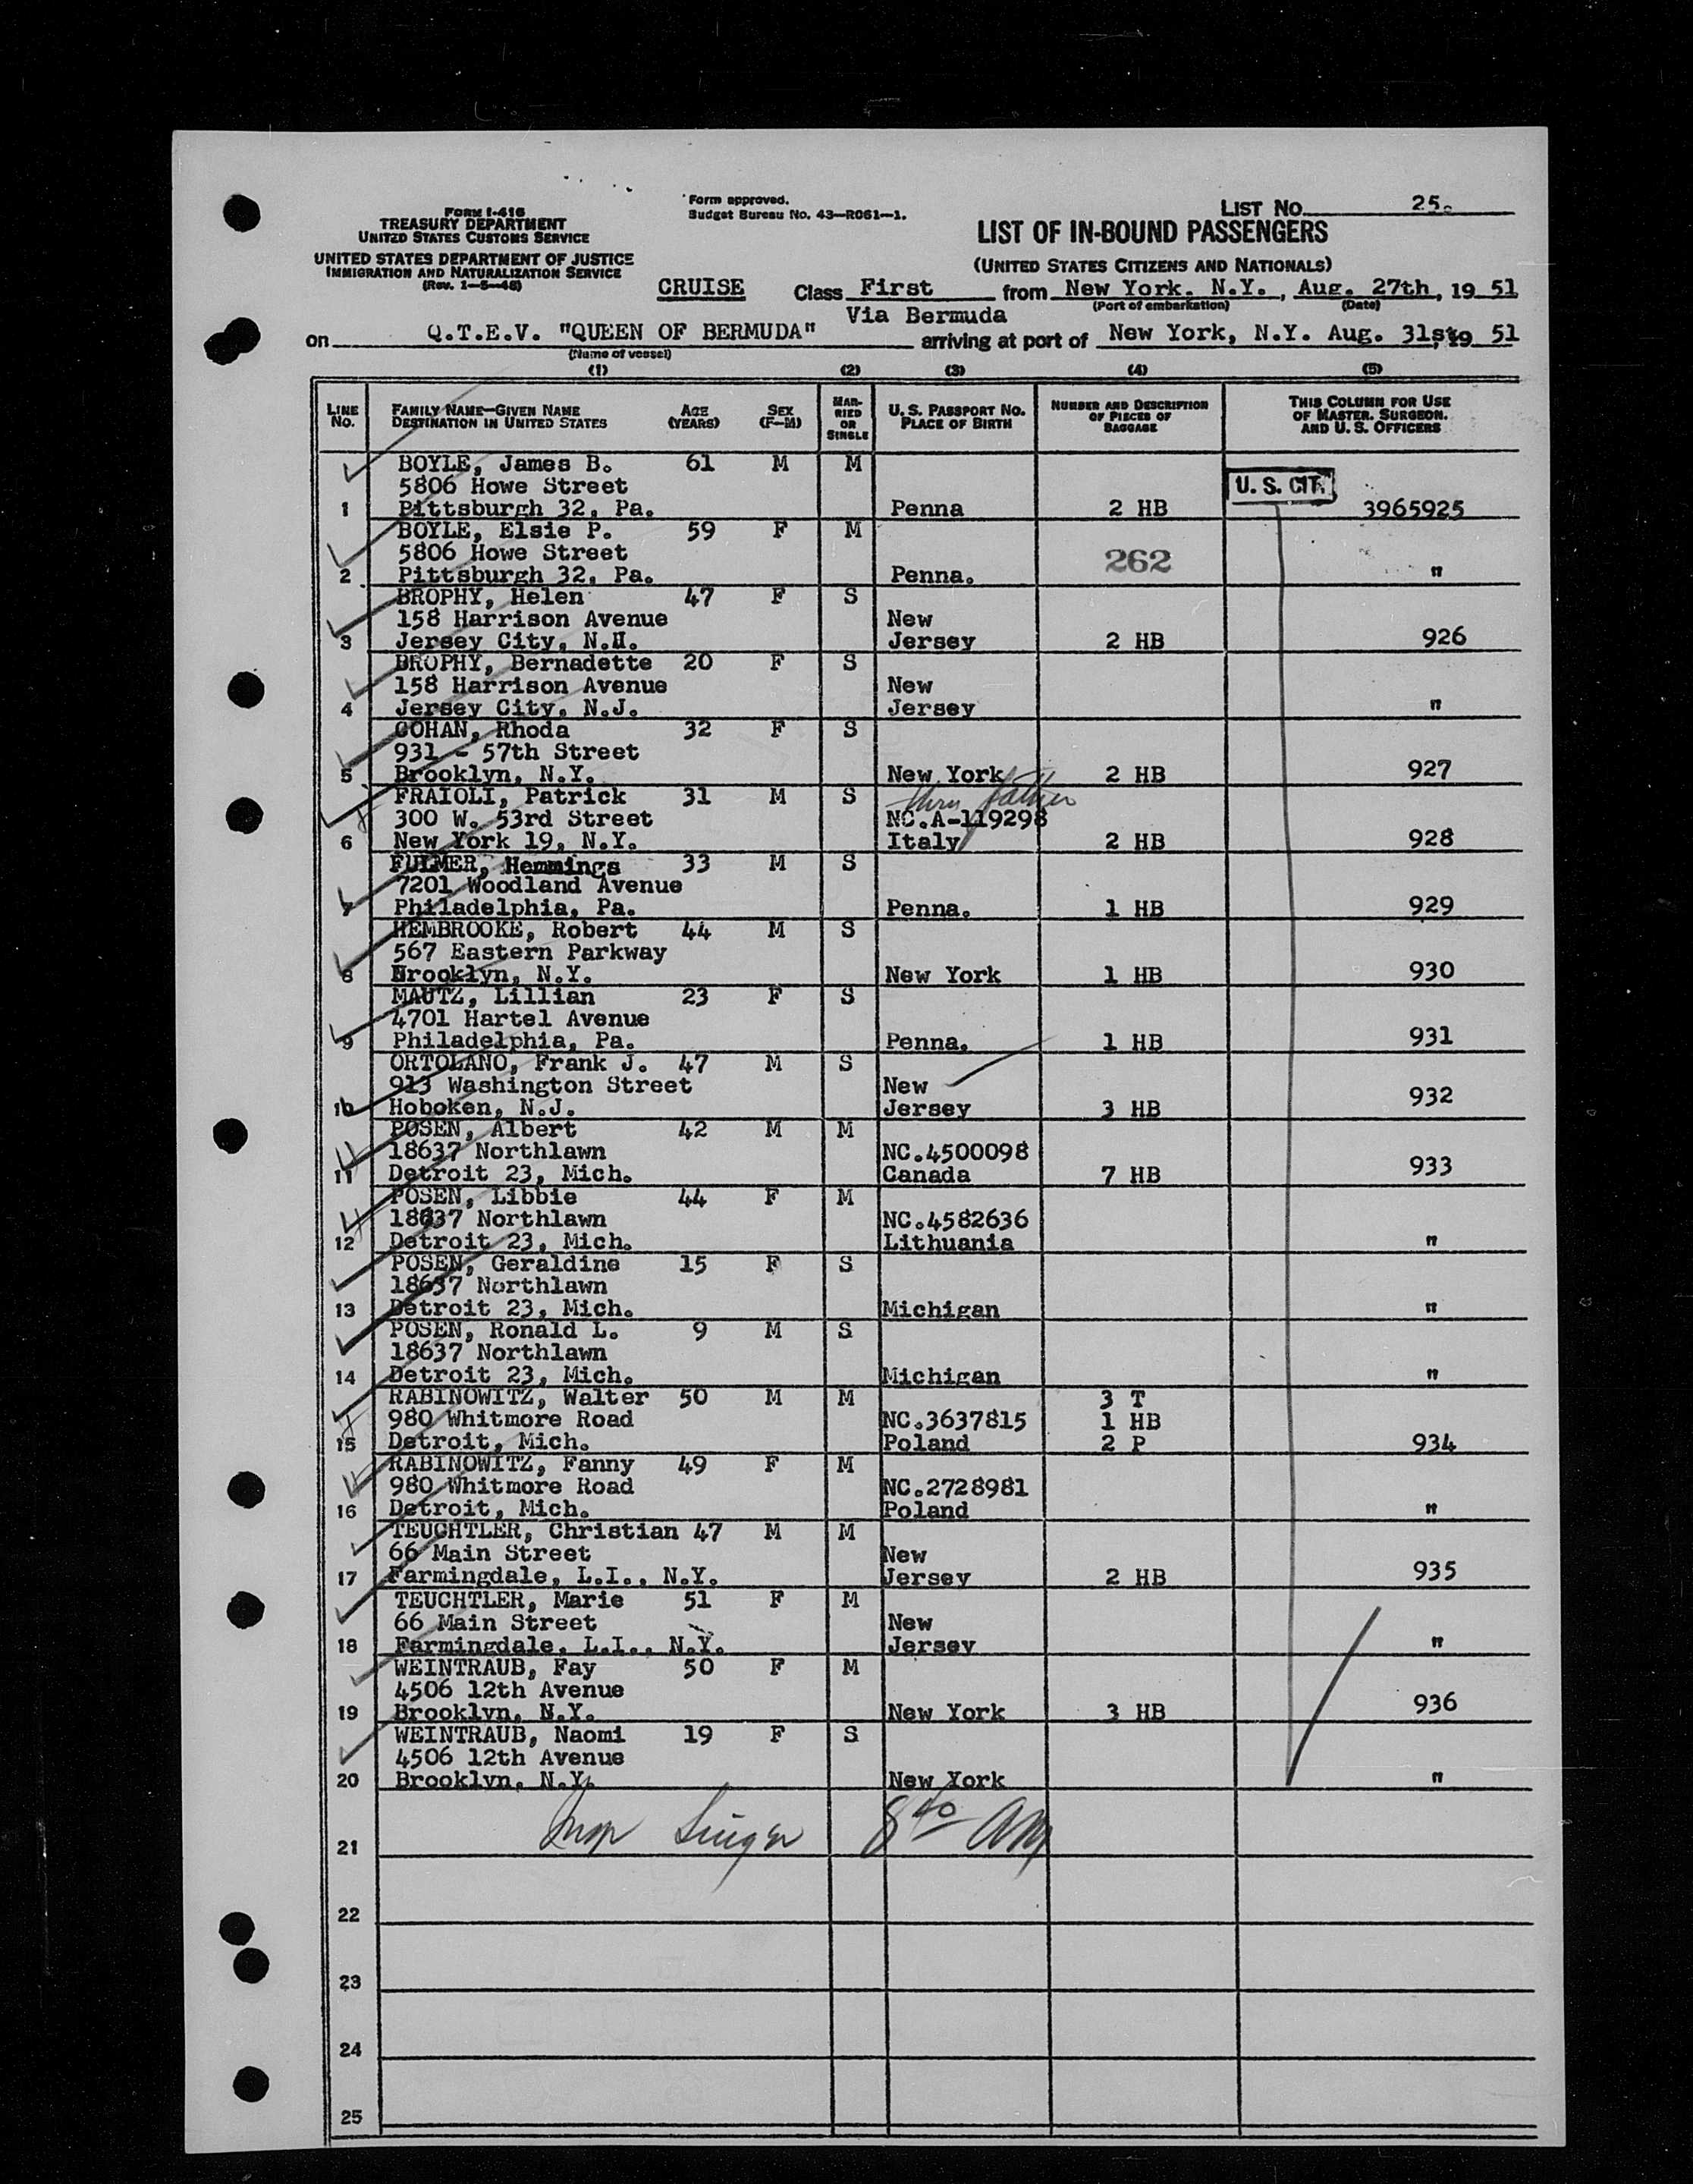 Form I-416
TREASURY DEPARTMENT
UNITED STATES CUSTOMS SERVICE
UNITED STATES DEPARTMENT OF JUSTICE
IMMIGRATION AND NATURALIZATION SERVICE
(Rev. 1-5-48)
Form approved.
Budget Bureau No. 43-R061-1.
LIST No. 25.
LIST OF IN-BOUND PASSENGERS
(UNITED STATES CITIZENS AND NATIONALS)
CRUISE Class First from New York. N.Y., Aug. 27th, 19 51
(Port of embarkation) (Date)
Via Bermuda
on Q.T.E.V. "QUEEN OF BERMUDA" arriving at port of New York, N.Y. Aug. 31st, 19 51
(Name of vessel)
(1) (2) (3) (4) (5)
LINE No. FAMILY NAME—GIVEN NAME DESTINATION IN UNITED STATES AGE (YEARS) SEX (F-M) MARRIED OR SINGLE U. S. PASSPORT NO. PLACE OF BIRTH NUMBER AND DESCRIPTION OF PIECES OF BAGGAGE THIS COLUMN FOR USE OF MASTER. SURGEON. AND U. S. OFFICERS
BOYLE, James B. 61 M M
5806 Howe Street U. S. CIT.
1 Pittsburgh 32, Pa. Penna 2 HB 3965925
BOYLE, Elsie P. 59 F M
5806 Howe Street 262
2 Pittsburgh 32, Pa. Penna. "
BROPHY, Helen 47 F S
158 Harrison Avenue New
3 Jersey City, N.H. Jersey 2 HB 926
BROPHY, Bernadette 20 F S
158 Harrison Avenue New
4 Jersey City, N.J. Jersey "
COHAN, Rhoda 32 F S
931 - 57th Street
5 Brooklyn, N.Y. New York 2 HB 927
FRAIOLI, Patrick 31 M S thru father
300 W. 53rd Street NC.A-119298
6 New York 19, N.Y. Italy 2 HB 928
FULMER, Hemmings 33 M S
7201 Woodland Avenue
7 Philadelphia, Pa. Penna. 1 HB 929
HEMBROOKE, Robert 44 M S
567 Eastern Parkway
8 Brooklyn, N.Y. New York 1 HB 930
MAUTZ, Lillian 23 F S
4701 Hartel Avenue
9 Philadelphia, Pa. Penna. 1 HB 931
ORTOLANO, Frank J. 47 M S
913 Washington Street New
10 Hoboken, N.J. Jersey 3 HB 932
POSEN, Albert 42 M M
18637 Northlawn NC.4500098
11 Detroit 23, Mich. Canada 7 HB 933
POSEN, Libbie 44 F M
18637 Northlawn NC.4582636
12 Detroit 23, Mich. Lithuania "
POSEN, Geraldine 15 F S
18637 Northlawn
13 Detroit 23, Mich. Michigan "
POSEN, Ronald L. 9 M S
18637 Northlawn
14 Detroit 23, Mich. Michigan "
RABINOWITZ, Walter 50 M M 3 T
980 Whitmore Road NC.3637815 1 HB
15 Detroit, Mich. Poland 2 P 934
RABINOWITZ, Fanny 49 F M
980 Whitmore Road NC.2728981
16 Detroit, Mich. Poland "
TEUCHTLER, Christian 47 M M
66 Main Street New
17 Farmingdale, L.I., N.Y. Jersey 2 HB 935
TEUCHTLER, Marie 51 F M
66 Main Street New
18 Farmingdale, L.I., N.Y. Jersey "
WEINTRAUB, Fay 50 F M
4506 12th Avenue
19 Brooklyn, N.Y. New York 3 HB 936
WEINTRAUB, Naomi 19 F S
4506 12th Avenue
20 Brooklyn, N.Y. New York "
21 Insp Singer 8 40 AM
22
23
24
25